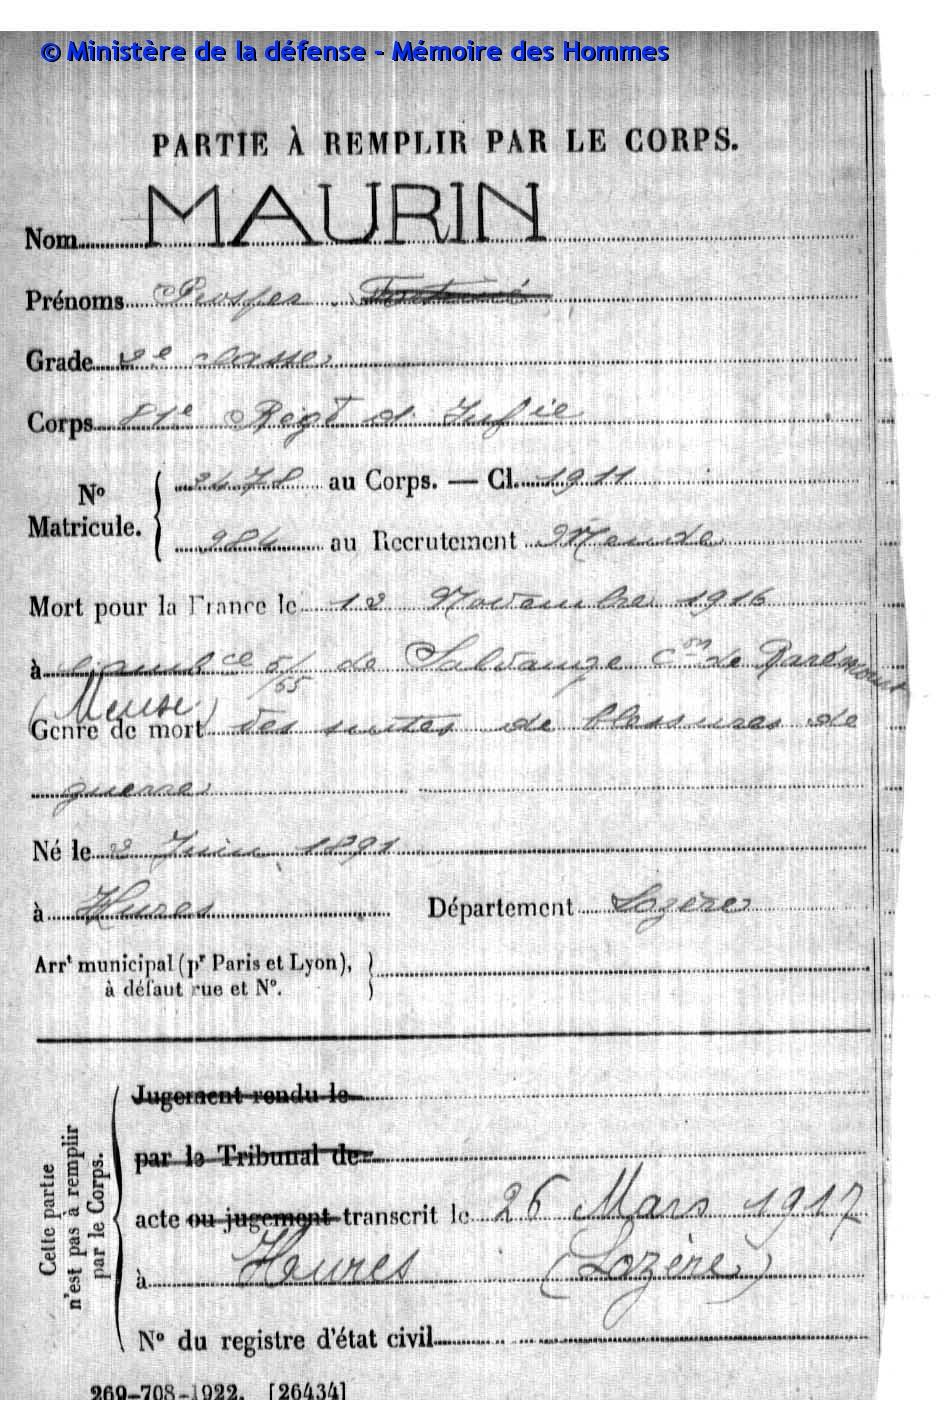 © Ministère de la défense - Mémoire des Hommes
PARTIE À REMPLIR PAR LE CORPS.
Nom MAURIN
Prénoms Prosper
Grade 2e classe
Corps 81e Régt d'Infie
No Matricule. { 2478 au Corps. — Cl. 1911
984 au Recrutement Mende
Mort pour la France le 12 Novembre 1916
à l'ambce 5/55 de Salvange Con de Rarémont
(Meuse)
Genre de mort des suites de blessures de
guerre
Né le 2 Juin 1891
à Hures Département Lozère
Arrt municipal (pr Paris et Lyon),
à défaut rue et No.
Cette partie
n'est pas à remplir
par le Corps.
Jugement rendu le
par le Tribunal de
acte ou jugement transcrit le 26 Mars 1917
à Hures (Lozère)
No du registre d'état civil
269-708-1922. [26434]